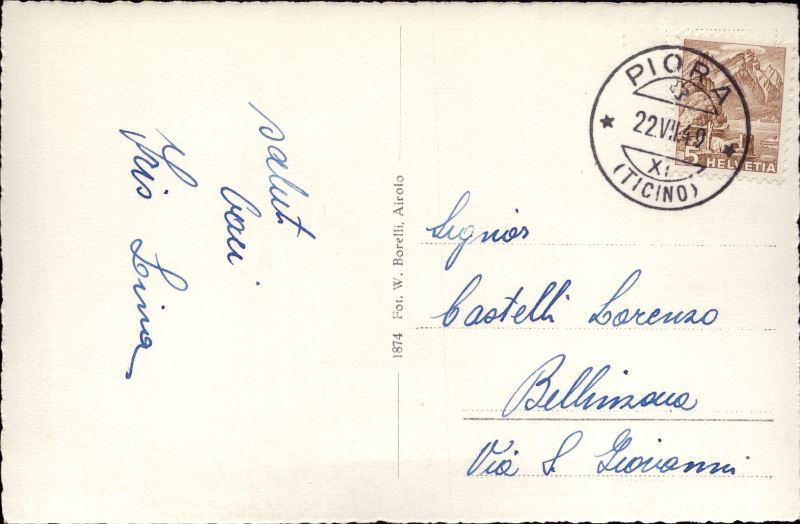 salut
cari
Iris Lina
1874 Fot. W. Borelli, Airolo
PIORA
22.VII.49
XI
(TICINO)
5 HELVETIA
Signor
Castelli Lorenzo
Bellinzona
Via S. Giovanni